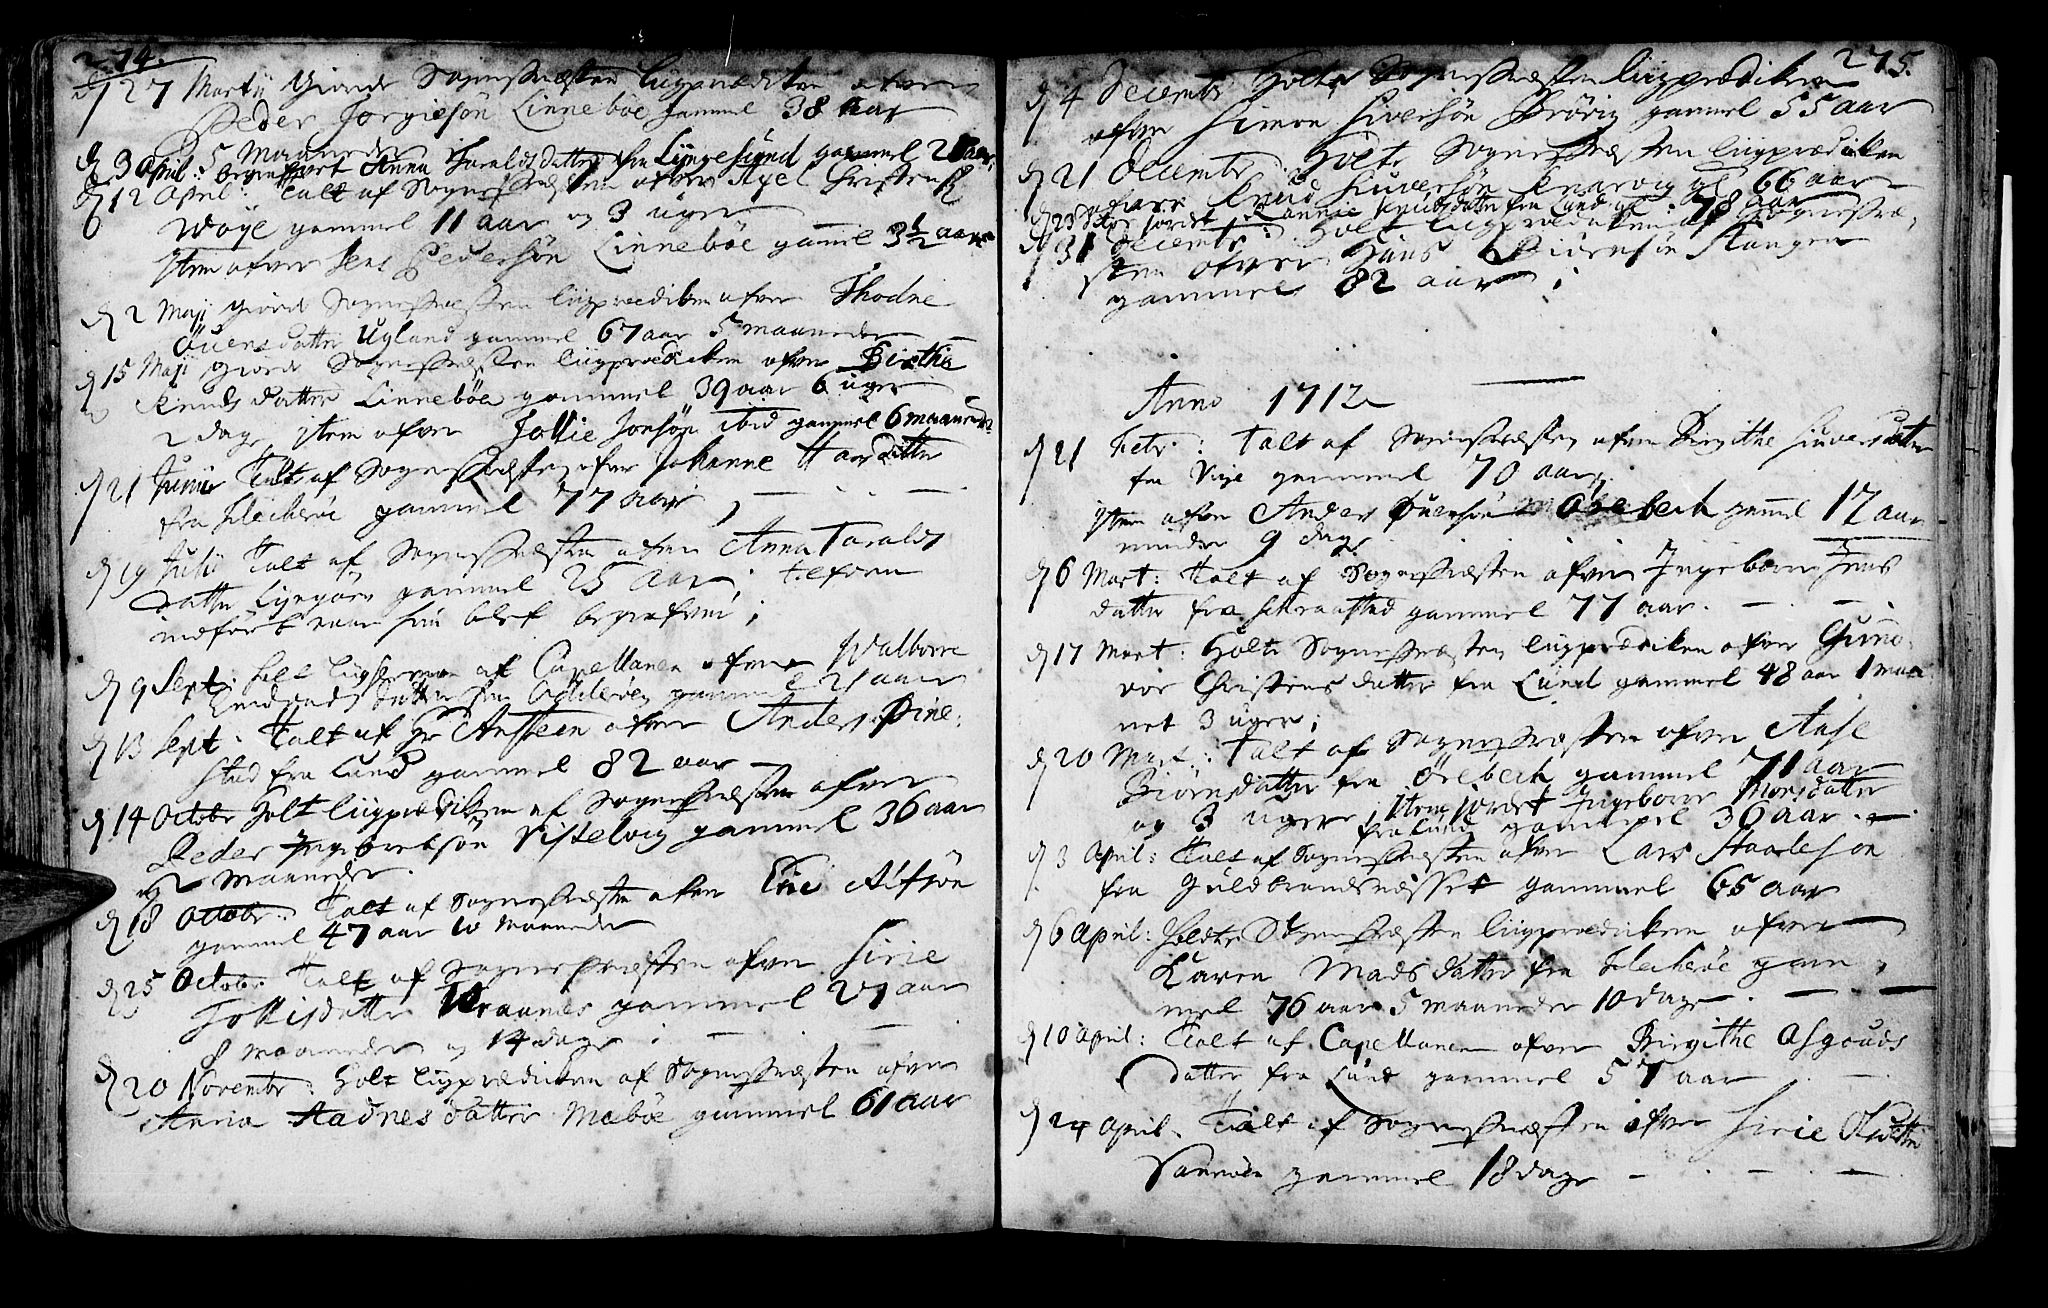 274.
27 Martij giorde Sognepræsten liigprædiken ofver
Peder Jorgiesön Linneböe gammel 38 aar
5 Maaneder
3 April: begrafvet Anna Taraldsdatter fra Lyngesund gammel aar
12 April: Talt af Sognepræsten ofver Axel Christens
Woxe gammel 11 aar og 3 uger
item ofver Jens Pedersön Linneböe gamel 3½ aar
2 Maji giorde Sognepræsten liigprædiken ofver Thodne
Öuensdatter Ugland gammel 67 aar 5 maaneder
15 Maji giorde Sognepræsten liigprædiken ofver Birthe
Knudsdatter Linneböe gammel 39 aar 6 uger
2 dage, item ofver Jollie Jonsön ibid gammel 6 maaneder
21 Junii Talt af Sognepræsten ofver Johanne
fra Flecheröe gammel 77 aar;
19 Julii Talt af Sognepræsten ofver Anna Taralds
datter Lyngöer gammel 25 aar, tilforn
indfört naar hun blef begrafven;
9 Sept: holt liigsermon af Capellanen ofver Walborre
datter fra gammel 21 aar
13 Sept: Talt af Hr Ansteen ofver Anders Pine,
stad fra Lund gammel 82 aar
14 Octobr Holt liigprædiken af Sognepræsten ofver
Peder Ingebretsön Sistelvig gammel 36 aar
og 2 Maaneder.
18 Octobr: Talt af Sognepræsten ofver Eric Alfsön
gammel 47 aar 10 Maaneder
25 Octobr: Talt af Sognepræsten ofver Sirie
Jollisdatter gammel 21 aar
8 maaneder og 14 dage;
20 Novembr: Holt liigprædiken af Sognepræsten ofver
Anna Aadnesdatter Mæböe gammel 61 aar
275.
4 Decembr Holte Sognepræsten liigprædiken
ofver Simon Siversön Brövig gammel 55 aar
21 Decembr: Holte Sognepræsten liigprædiken
ofver Knud Siuversön Knarvig gl. 66 aar
23 jordet Knudsdatter fra Lund gl: 78 aar
31 Decembr: Holt liigprædiken af Sognepræ,
sten ofver Hans Biörnsön Stangen
gammel 82 aar;
Anno 1712
21 Febr: Talt af Sognepræsten ofver Birgithe Siuversdatter
fra Vixe gammel 70 aar,
item ofver Anders Öuensön Örebech gammel 17 aar
mindre 9 dage
6 Mart: Talt af Sognepræsten ofver Ingeborre Jens
datter fra Schraastad gammel 77 aar.
17 Mart: Holte Sognepræsten liigprædiken ofver Guno,
vor Christensdatter fra Lund gammel 48 aar 1 maa
net 3 uger;
20 Mart: Talt af Sognepræsten ofver Aase
Biörnsdatter fra Örebech gammel 71 aar
og 3 uger, item jordet Ingeborre Monsdatter
fra Lund gammel 36 aar.
3 April: Talt af Sognepræsten ofver Lars Staaleson
fra Guldbrandsnesset gammel 65 aar
6 April: Holdte Sognepræsten liigprædiken ofver
Karen Madsdatter fra Flecheröe gam,
mel 76 aar 5 maaneder 10 dage.
10 April: Talt af Capellanen ofver Birgithe Asgouds
datter fra Lund gammel 57 aar
24 April. Talt af Sognepræsten ofver Sirie Olsdatter
Sannöen gammel 18 dage